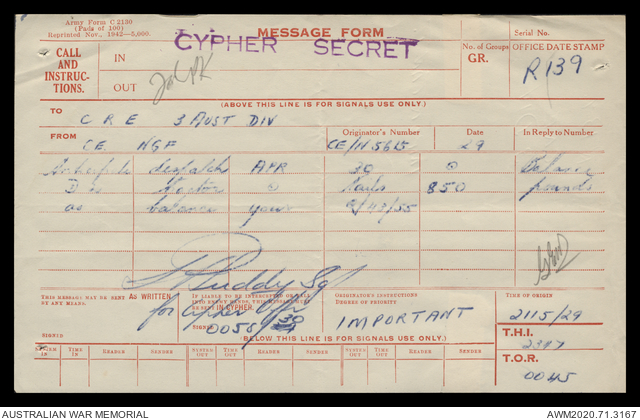 Army Form C 2130
(Pads of 100)
Reprinted Nov., 1942—5,000.
MESSAGE FORM
CYPHER SECRET
Serial No.
CALL
AND
INSTRUC-
TIONS.
IN
OUT
No. of Groups
GR.
OFFICE DATE STAMP
R139
(ABOVE THIS LINE IS FOR SIGNALS USE ONLY.)
TO
CRE 3 AUST DIV
FROM
Originator's Number
Date
In Reply to Number
CE NGF
29
despatch APR 30
850 pounds
as balance your
Ruddy Sgt
for cypher
THIS MESSAGE MAY BE SENT AS WRITTEN
BY ANY MEANS.
SIGNED
IF LIABLE TO BE INTERCEPTED OR FALL
INTO ENEMY HANDS, THIS MESSAGE MUST
BE SENT IN CYPHER.
SIGNED
0055
30
ORIGINATOR'S INSTRUCTIONS
DEGREE OF PRIORITY
IMPORTANT
TIME OF ORIGIN
2115/29
T.H.I.
T.O.R.
0045
(BELOW THIS LINE IS FOR SIGNALS USE ONLY.)
TIME IN
READER
SENDER
SYSTEM OUT
TIME OUT
READER
SENDER
SYSTEM OUT
TIME OUT
READER
SENDER
AUSTRALIAN WAR MEMORIAL
AWM2020.71.3167